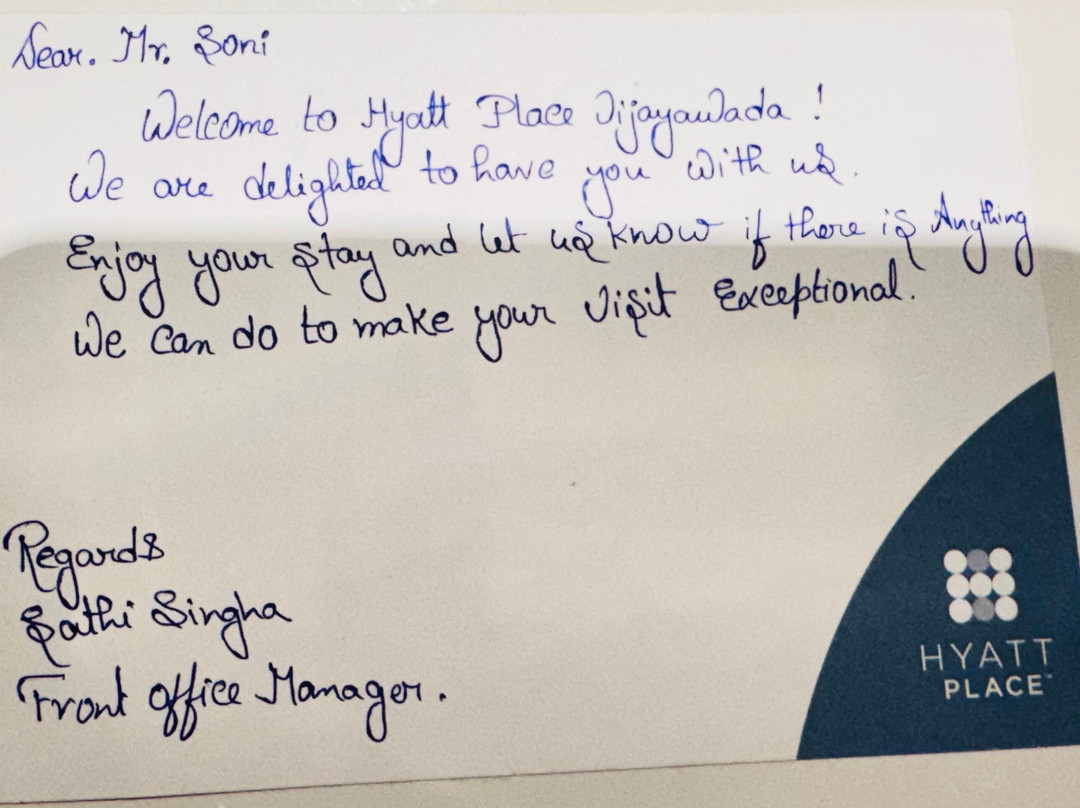 Dear. Mr. Soni
Welcome to Hyatt Place Vijayawada !
We are delighted to have you with us.
Enjoy your stay and let us know if there is Anything
We can do to make your visit Exceptional.
Regards
Sathi Singha
Front office Manager.
HYATT
PLACE